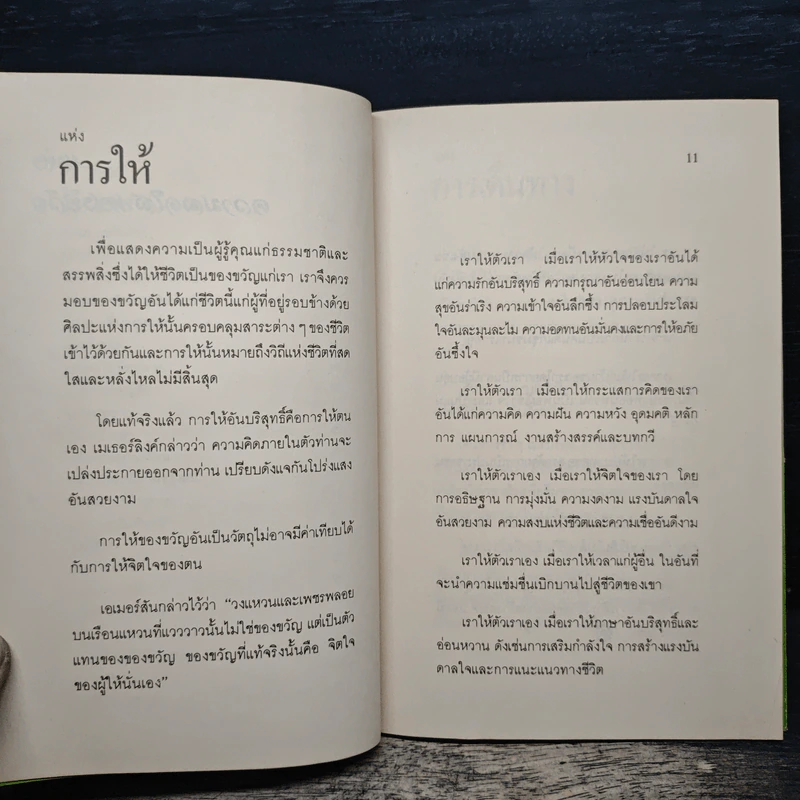 แห่ง
การให้
เพื่อแสดงความเป็นผู้รู้คุณแก่ธรรมชาติและ
สรรพสิ่งซึ่งได้ให้ชีวิตเป็นของขวัญแก่เรา เราจึงควร
มอบของขวัญอันได้แก่ชีวิตนี้แก่ผู้ที่อยู่รอบข้างด้วย
ศิลปะแห่งการให้นั้นครอบคลุมสาระต่าง ๆ ของชีวิต
เข้าไว้ด้วยกันและการให้นั้นหมายถึงวิถีแห่งชีวิตที่สด
ใสและหลั่งไหลไม่มีสิ้นสุด
โดยแท้จริงแล้ว การให้อันบริสุทธิ์คือการให้ตน
เอง เมเธอร์ลิงค์กล่าวว่า ความคิดภายในตัวท่านจะ
เปล่งประกายออกจากท่าน เปรียบดังแจกันโปร่งแสง
อันสวยงาม
การให้ของขวัญอันเป็นวัตถุไม่อาจมีค่าเทียบได้
กับการให้จิตใจของตน
เอเมอร์สันกล่าวไว้ว่า “วงแหวนและเพชรพลอย
บนเรือนแหวนที่แวววาวนั้นไม่ใช่ของขวัญ แต่เป็นตัว
แทนของของขวัญ ของขวัญที่แท้จริงนั้นคือ จิตใจ
ของผู้ให้นั่นเอง”
11
เราให้ตัวเรา เมื่อเราให้หัวใจของเราอันได้
แก่ความรักอันบริสุทธิ์ ความกรุณาอันอ่อนโยน ความ
สุขอันร่าเริง ความเข้าใจอันลึกซึ้ง การปลอบประโลม
ใจอันละมุนละไม ความอดทนอันมั่นคงและการให้อภัย
อันซึ้งใจ
เราให้ตัวเรา เมื่อเราให้กระแสการคิดของเรา
อันได้แก่ความคิด ความฝัน ความหวัง อุดมคติ หลัก
การ แผนการณ์ งานสร้างสรรค์และบทกวี
เราให้ตัวเราเอง เมื่อเราให้จิตใจของเรา โดย
การอธิษฐาน การมุ่งมั่น ความงดงาม แรงบันดาลใจ
อันสวยงาม ความสงบแห่งชีวิตและความเชื่ออันดีงาม
เราให้ตัวเราเอง เมื่อเราให้เวลาแก่ผู้อื่น ในอันที่
จะนำความแช่มชื่นเบิกบานไปสู่ชีวิตของเขา
เราให้ตัวเราเอง เมื่อเราให้ภาษาอันบริสุทธิ์และ
อ่อนหวาน ดังเช่นการเสริมกำลังใจ การสร้างแรงบัน
ดาลใจและการแนะแนวทางชีวิต